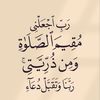 رَبِّ اجْعَلْنِي
مُقِيمَ الصَّلَاةِ
وَمِن ذُرِّيَّتِي ۚ
رَبَّنَا وَتَقَبَّلْ دُعَاءِ